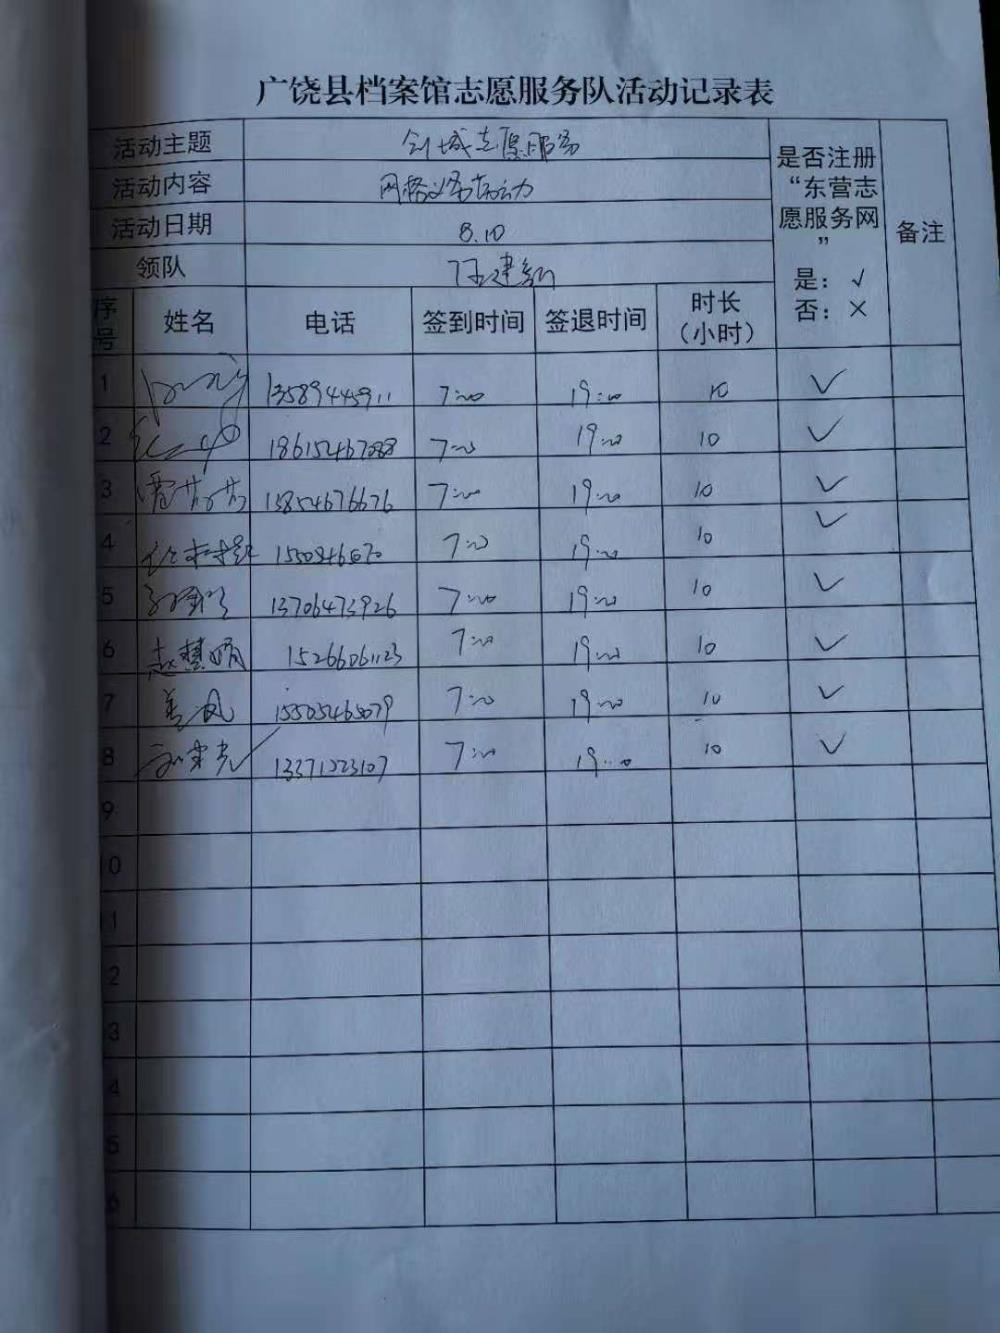 广饶县档案馆志愿服务队活动记录表
活动主题 创城志愿服务 是否注册“东营志愿服务网” 是：√ 否：× 备注
活动内容 网格义务劳动
活动日期 8.10
领队
序号 姓名 电话 签到时间 签退时间 时长（小时）
1 13589445911 7:00 19:00 10 √
2 18615467088 7:00 19:00 10 √
3 13854676676 7:00 19:00 10 √
4 7:00 19:00 10 √
5 13706473926 7:00 19:00 10 √
6 赵慧娟 15266061123 7:00 19:00 10 √
7 15505465079 7:00 19:00 10 √
8 13371223107 7:00 19:00 10 √
9
10
11
12
13
14
15
16